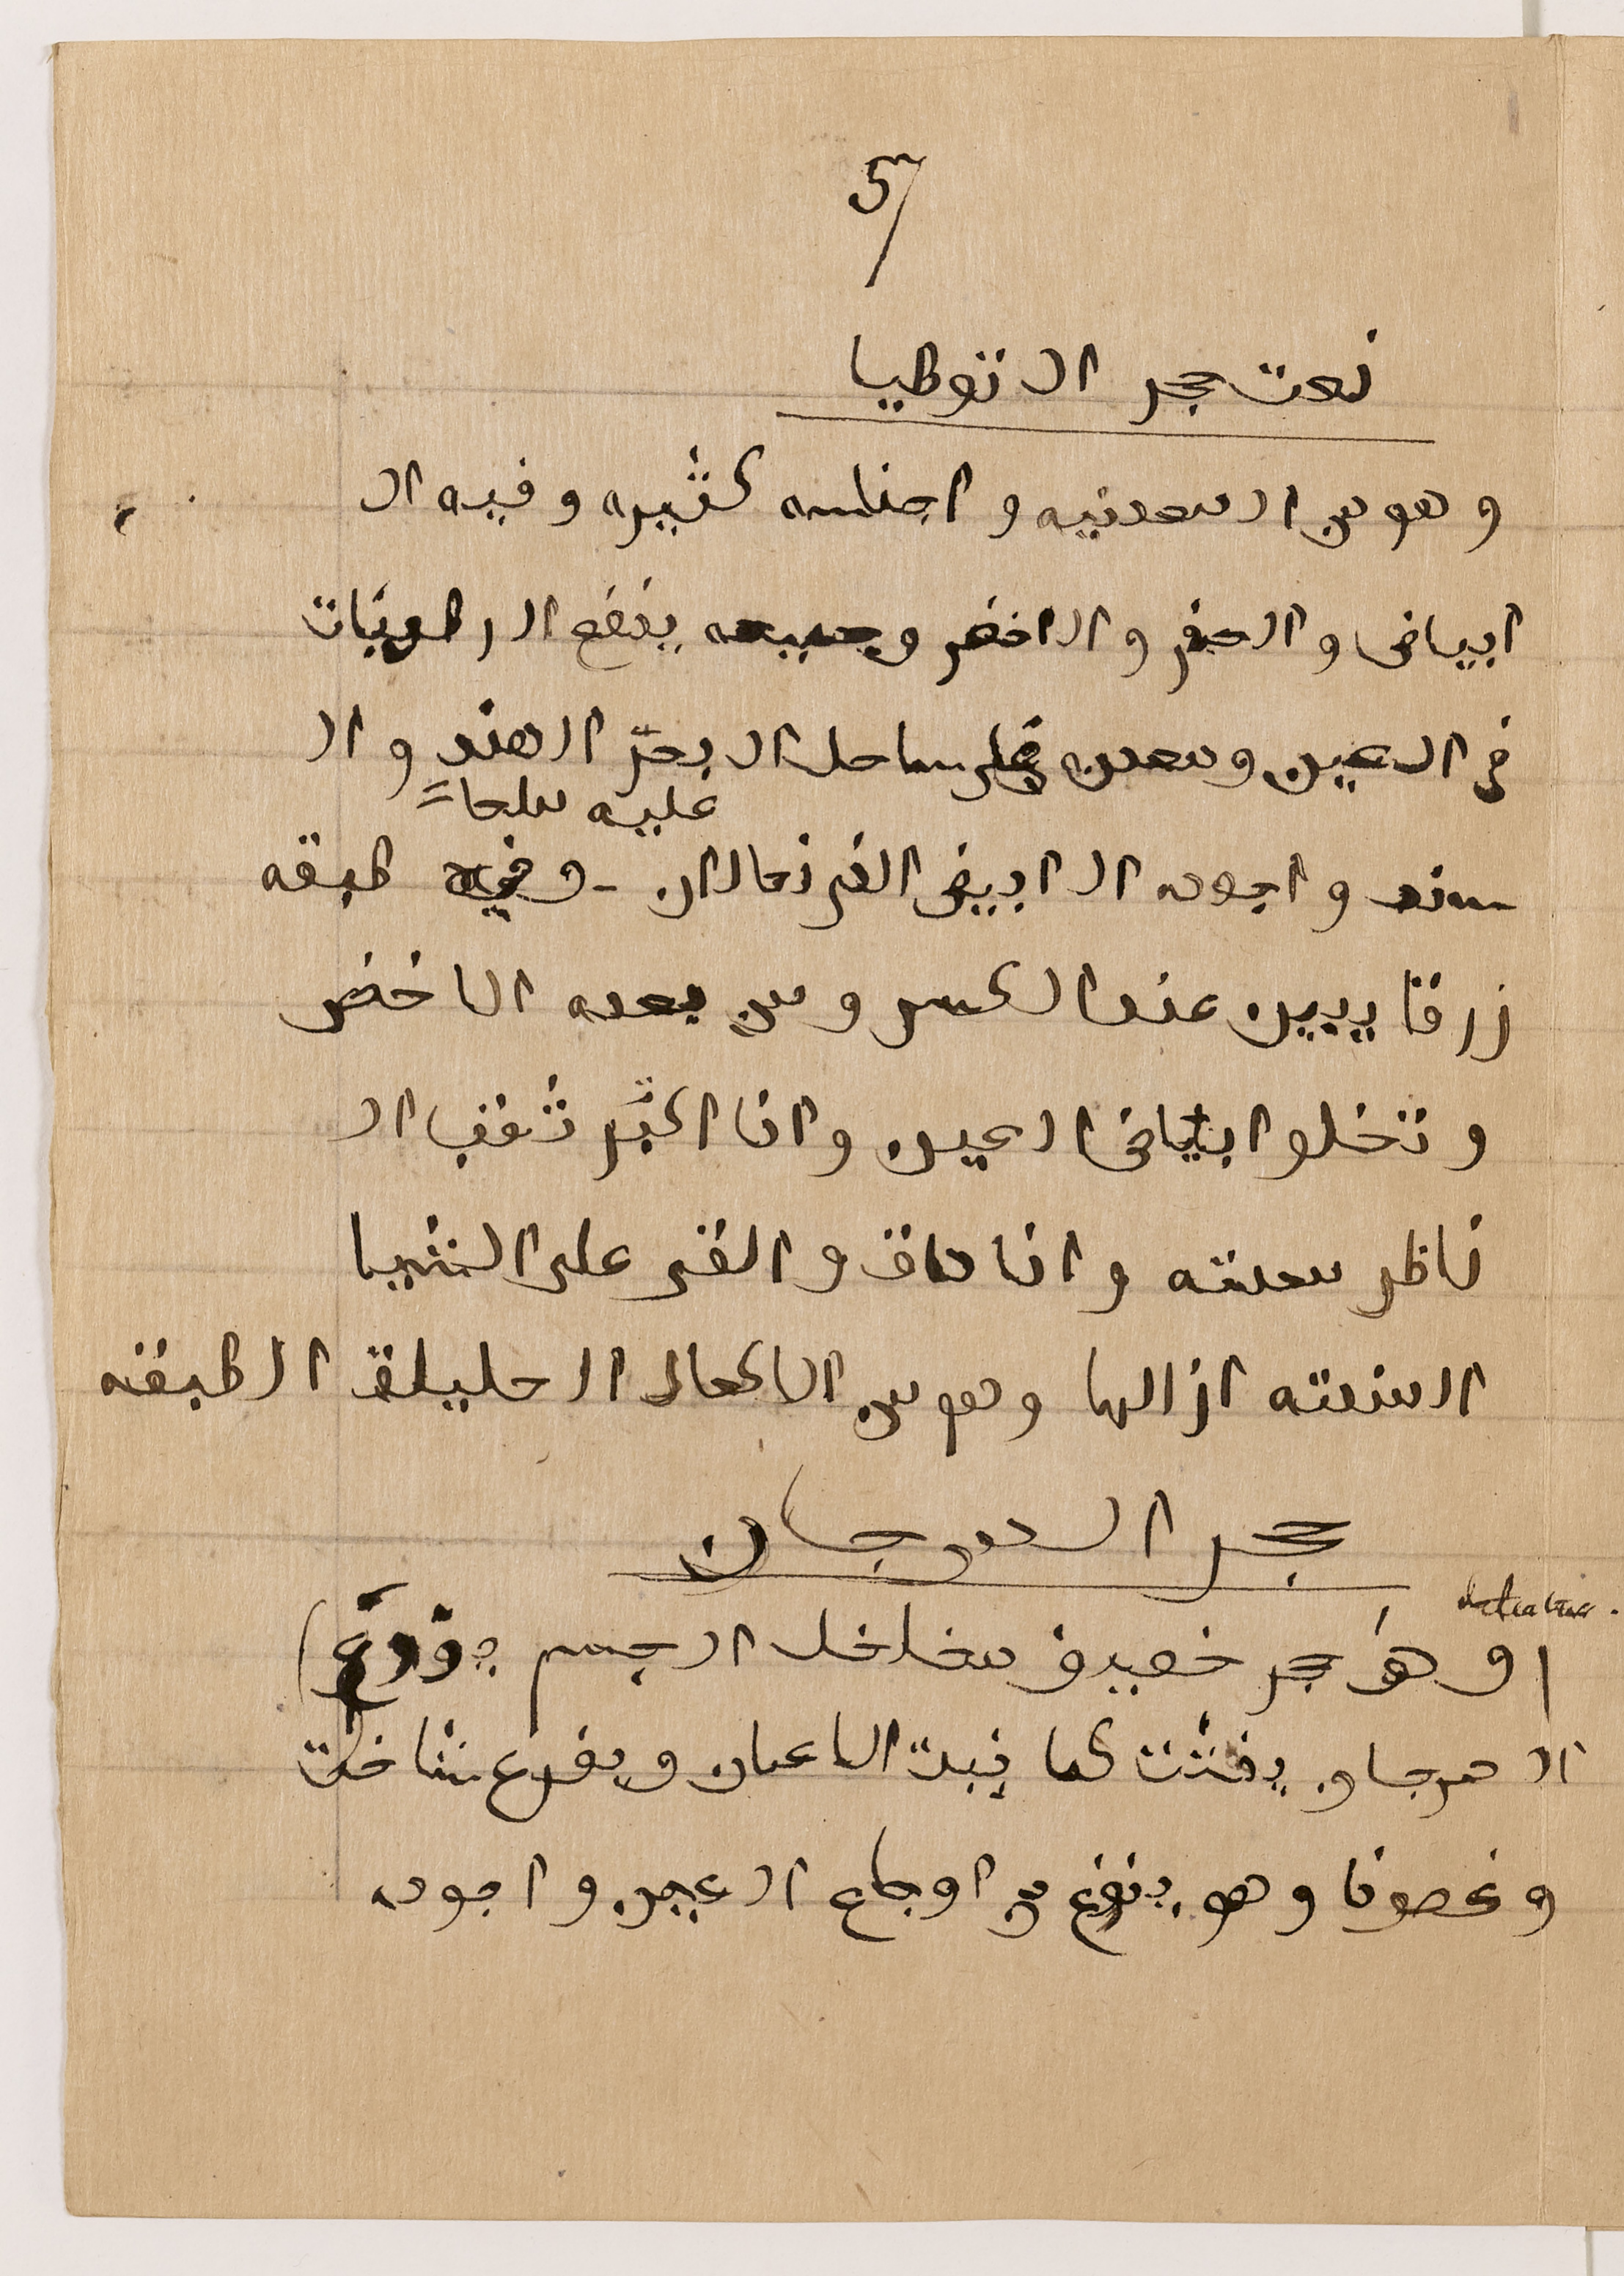 57
نعت حجر التوطيا
وهو من المعدنيه و اجناسه كثيره و فيه ال
ابياض والصفر والاخضر وجميعه ينفع الرطوبات
في العين ومعدنه على ساحل البحر الهند وال
عليه ملحا
سند واجوده الابيض الذي تعال ان - وفيه طبقه
زرقا يبين عند الكسر ومن بعده الاخضر
و تخلوا ابياض العين وانا اكبر ثقب ال
ناظر سعته وانا داق والقى على الثيبا
المنتنه ازالها وهو من الاكحال الحليلة الطبقه
حجر المرجان
او هو حجر خفيف متخلخل الجسم يوزع
المرجان يفتت كما ينبت الاغصان ويفرع شاخات
و غصونا وهو ينفع من اوجاع العين واجوده